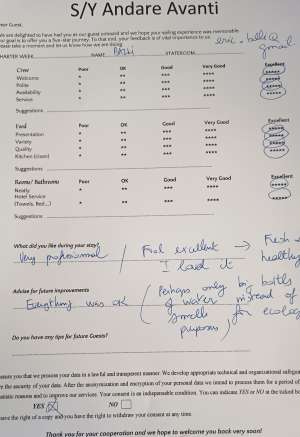 S/Y Andare Avanti
Guest,
We are delighted to have had you as our guest onboard and we hope your sailing experience was memorable
goal is to offer you a five-star journey. To that end, your feedback is of vital importance to us
Please take a moment and let us know how we are doing
CHARTER WEEK NAME STATEROOM
gmail
Crew Poor OK Good Very Good Excellent
Welcome * ** *** **** *****
Polite * ** *** **** *****
Availability * ** *** **** *****
Service * ** *** **** *****
Suggestions
Food Poor OK Good Very Good Excellent
Presentation * ** *** **** *****
Variety * ** *** **** *****
Quality * ** *** **** *****
Kitchen (clean) * ** *** **** *****
Suggestions
Rooms/ Bathrooms Poor OK Good Very Good Excellent
Ready * ** *** **** *****
Hotel Service
(Towels, Bed...) * ** *** **** *****
Suggestions
What did you like during your stay? / Food excellent → Fresh
Very professional I loved it healthy
Advise for future improvements
Everything was OK (Perhaps only big bottls
of water instead of
smalls for ecology
purposes)
Do you have any tips for future Guests?
assure you that we process your data in a lawful and transparent manner. We develop appropriate technical and organizational
the security of your data. After the anonymization and encryption of your personal data we intend to process them for a period of
reasons and to improve our services. Your consent is an indispensable condition. You can indicate YES or NO at the
YES NO
have the right of a copy and you have the right to withdraw your consent at any time.
Thank you for your cooperation and we hope to welcome you back very soon!